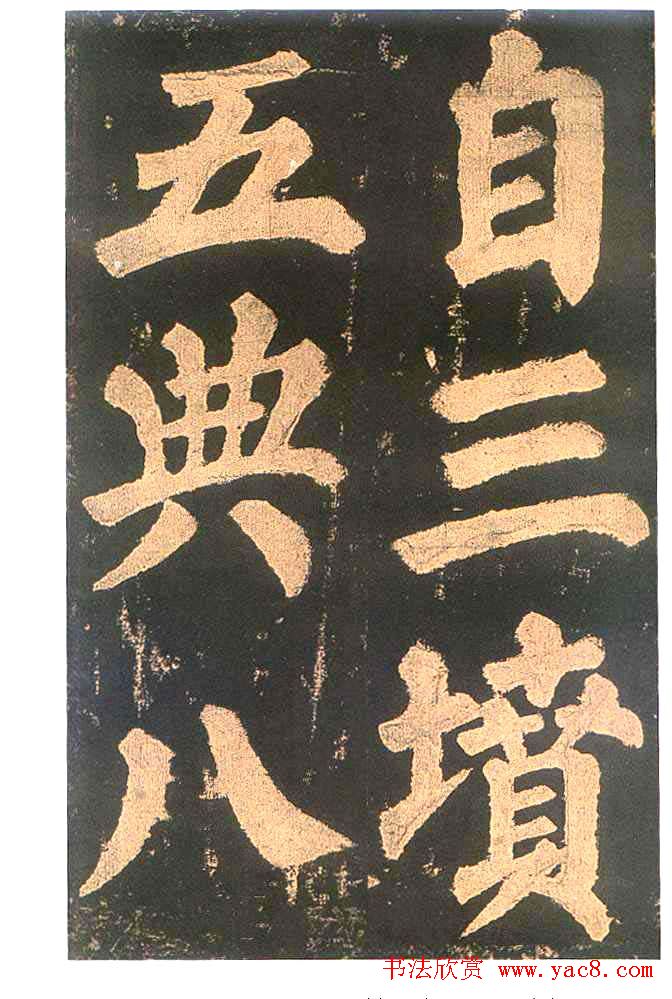 自三墳
五典八
书法欣赏 www.yac8.com